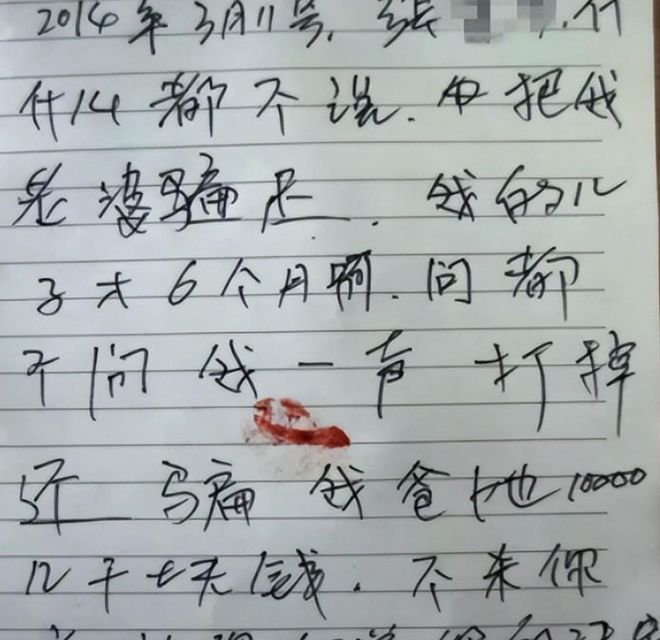 2014年3月11号, 张 . 什
什么都不说. 把我
老婆骗走. 我的儿
子才6个月啊. 问都
不问我一声 打掉
骗我爸 他10000
几千七天钱. 不来你